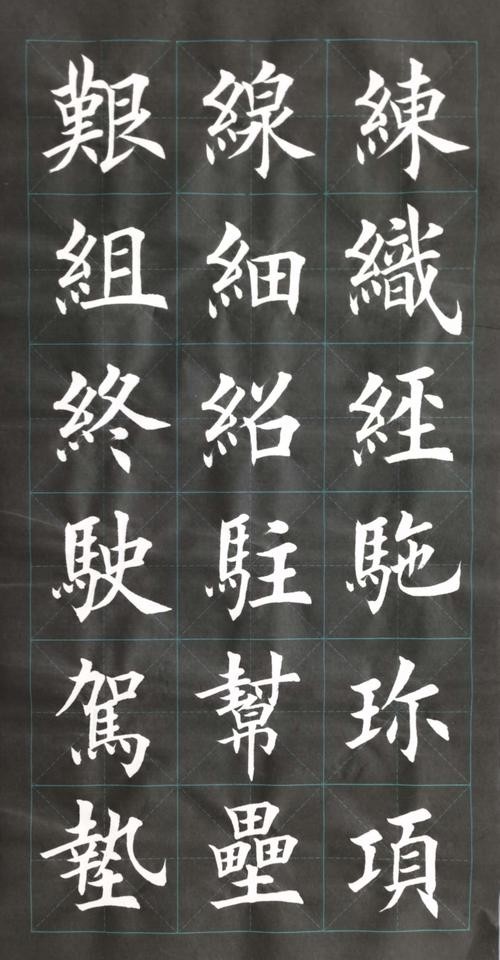 艱線練
組細織
終紹經
駛駐駞
駕幫珎
墊壘項